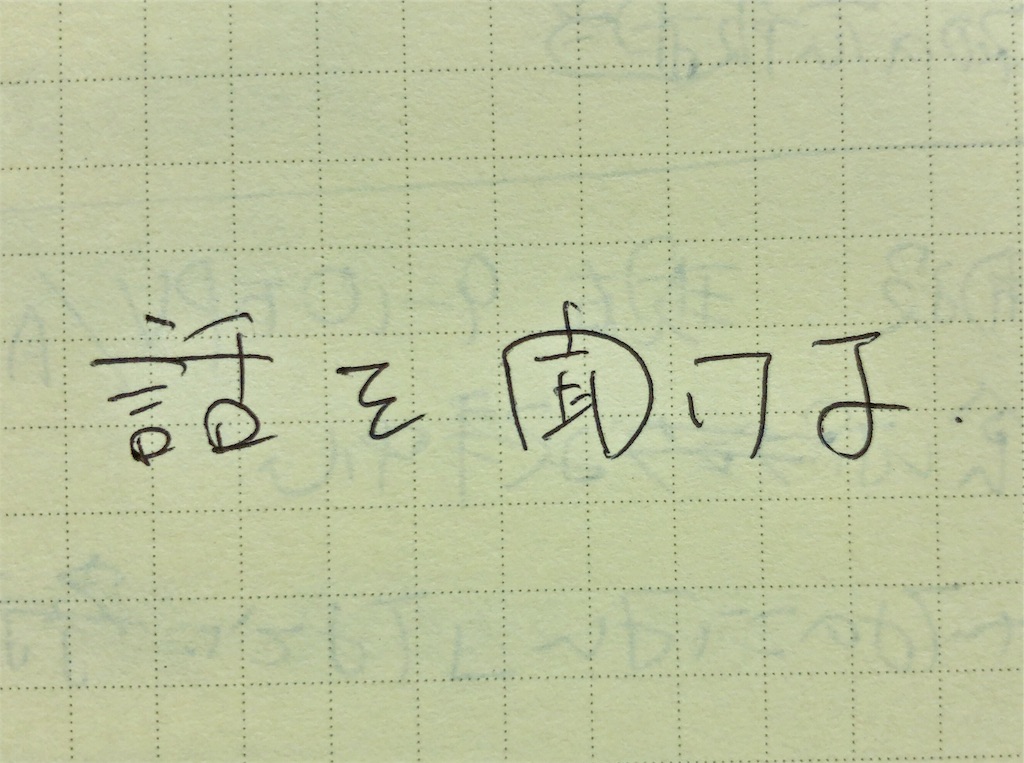 話を聞けよ.